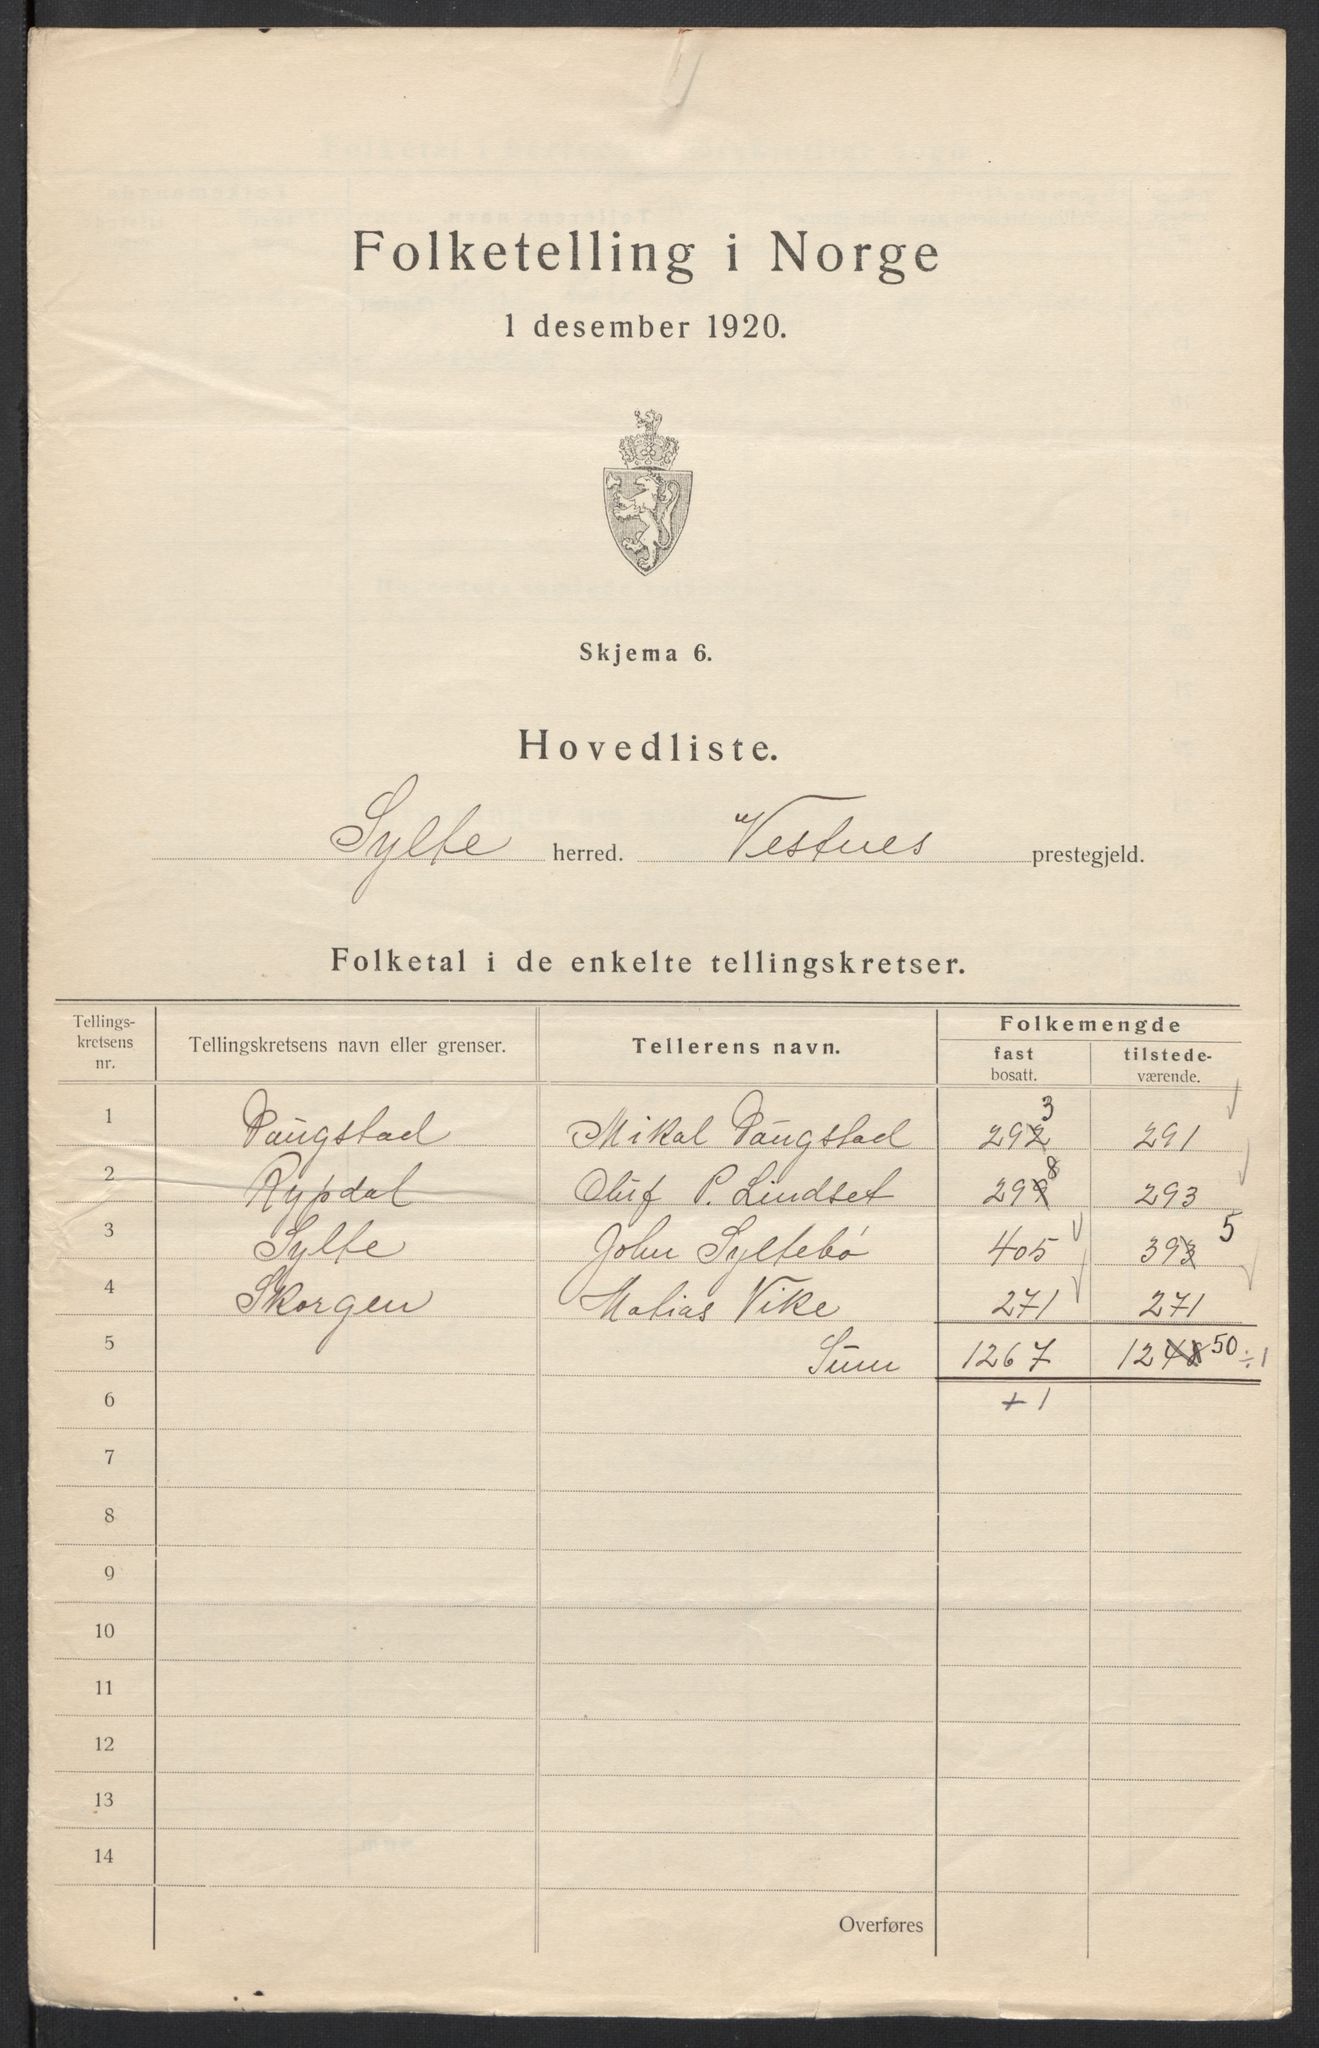 Folketelling i Norge
1 desember 1920.
Skjema 6.
Hovedliste.
Sylte herred. Vestnes prestegjeld.
Folketal i de enkelte tellingskretser.
Tellings-
kretsens
nr.
Tellingskretsens navn eller grenser.
Tellerens navn.
Folkemengde
fast
bosatt.
tilstede-
værende.
1 Daugstad Mikal Daugstad 292 3 291
2 Rypdal Oluf P. Lindset 299 8 293
3 Sylte John Syltebø 405 393 5
4 Skorgen Matias Vike 271 271
5 Sum 1267 1248 50 ÷1
6 +1
7
8
9
10
11
12
13
14
Overføres